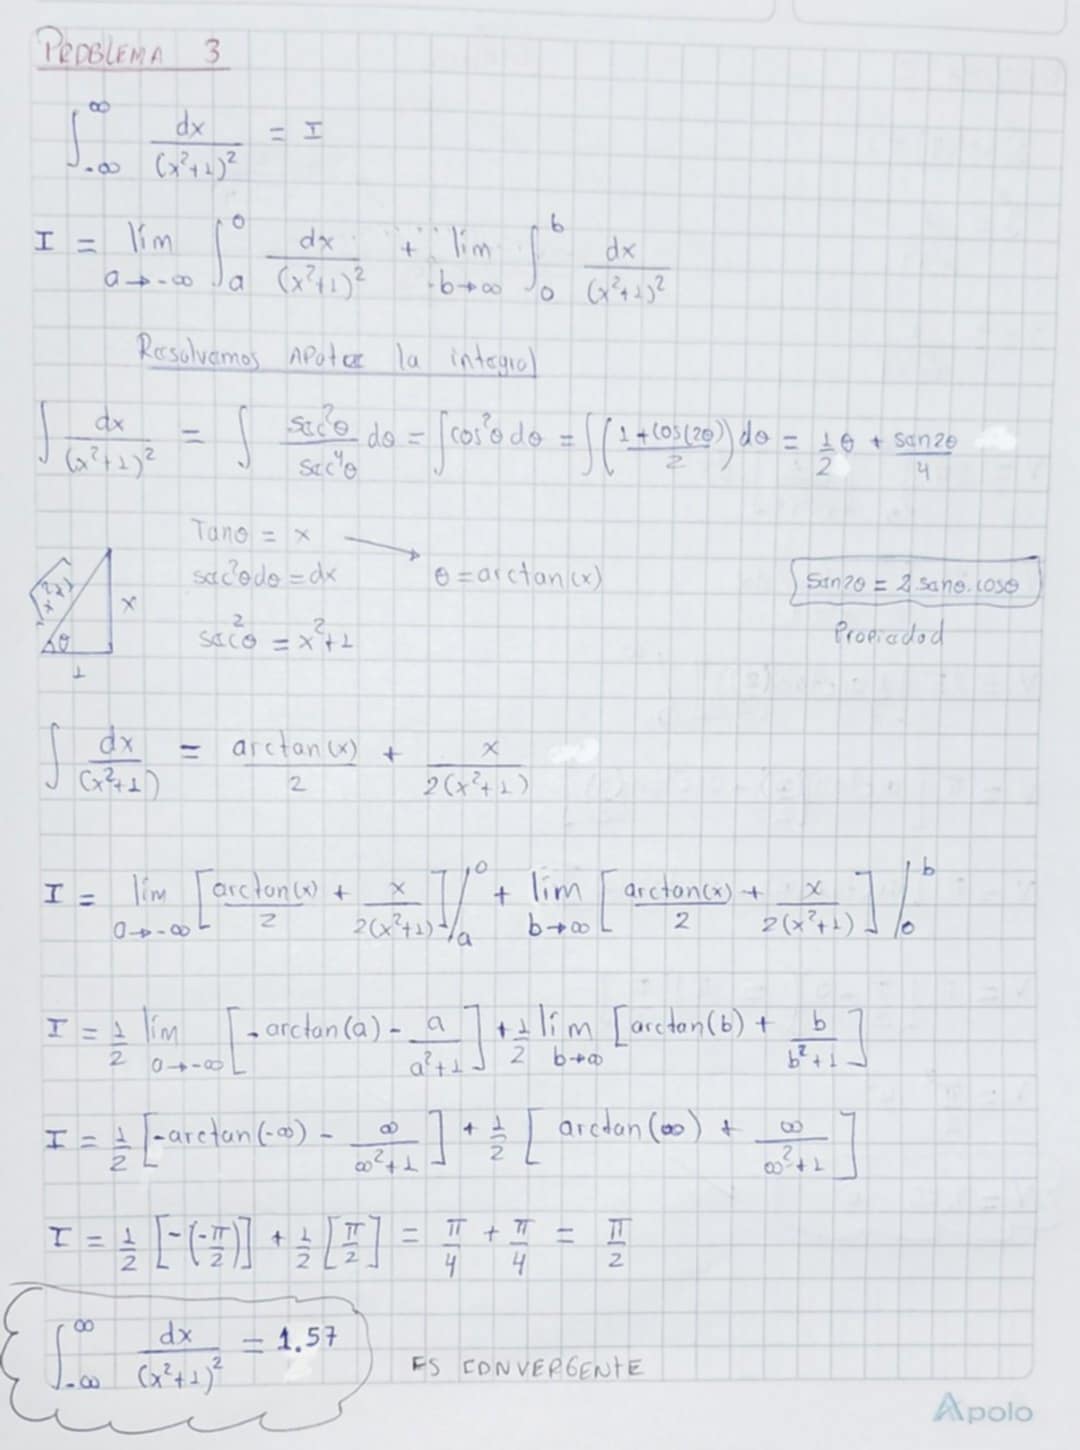 PROBLEMA 3
∫_{-∞}^{∞} dx/(x²+1)² = I
I = lím_{a→-∞} ∫_a^0 dx/(x²+1)² + lím_{b→∞} ∫_0^b dx/(x²+1)²
Resolvemos APate la integral
∫ dx/(x²+1)² = ∫ sec²θ/sec⁴θ dθ = ∫cos²θ dθ = ∫((1+cos(2θ))/2) dθ = 1/2 θ + sen2θ/4
Tanθ = x → θ = arctan(x)
sec²θdθ = dx
sec²θ = x²+1
√(x²+1)
x
θ
1
sen2θ = 2 senθ.cosθ
Propiedad
∫ dx/(x²+1) = arctan(x)/2 + x/(2(x²+1))
I = lím_{a→-∞} [arctan(x)/2 + x/(2(x²+1))]/_a^0 + lím_{b→∞} [arctan(x)/2 + x/(2(x²+1))]/_0^b
I = 1/2 lím_{a→-∞} [-arctan(a) - a/(a²+1)] + 1/2 lím_{b→∞} [arctan(b) + b/(b²+1)]
I = 1/2 [-arctan(-∞) - ∞/(∞²+1)] + 1/2 [arctan(∞) + ∞/(∞²+1)]
I = 1/2 [-(-π/2)] + 1/2 [π/2] = π/4 + π/4 = π/2
∫_{-∞}^{∞} dx/(x²+1)² = 1.57
ES CONVERGENTE
Apolo